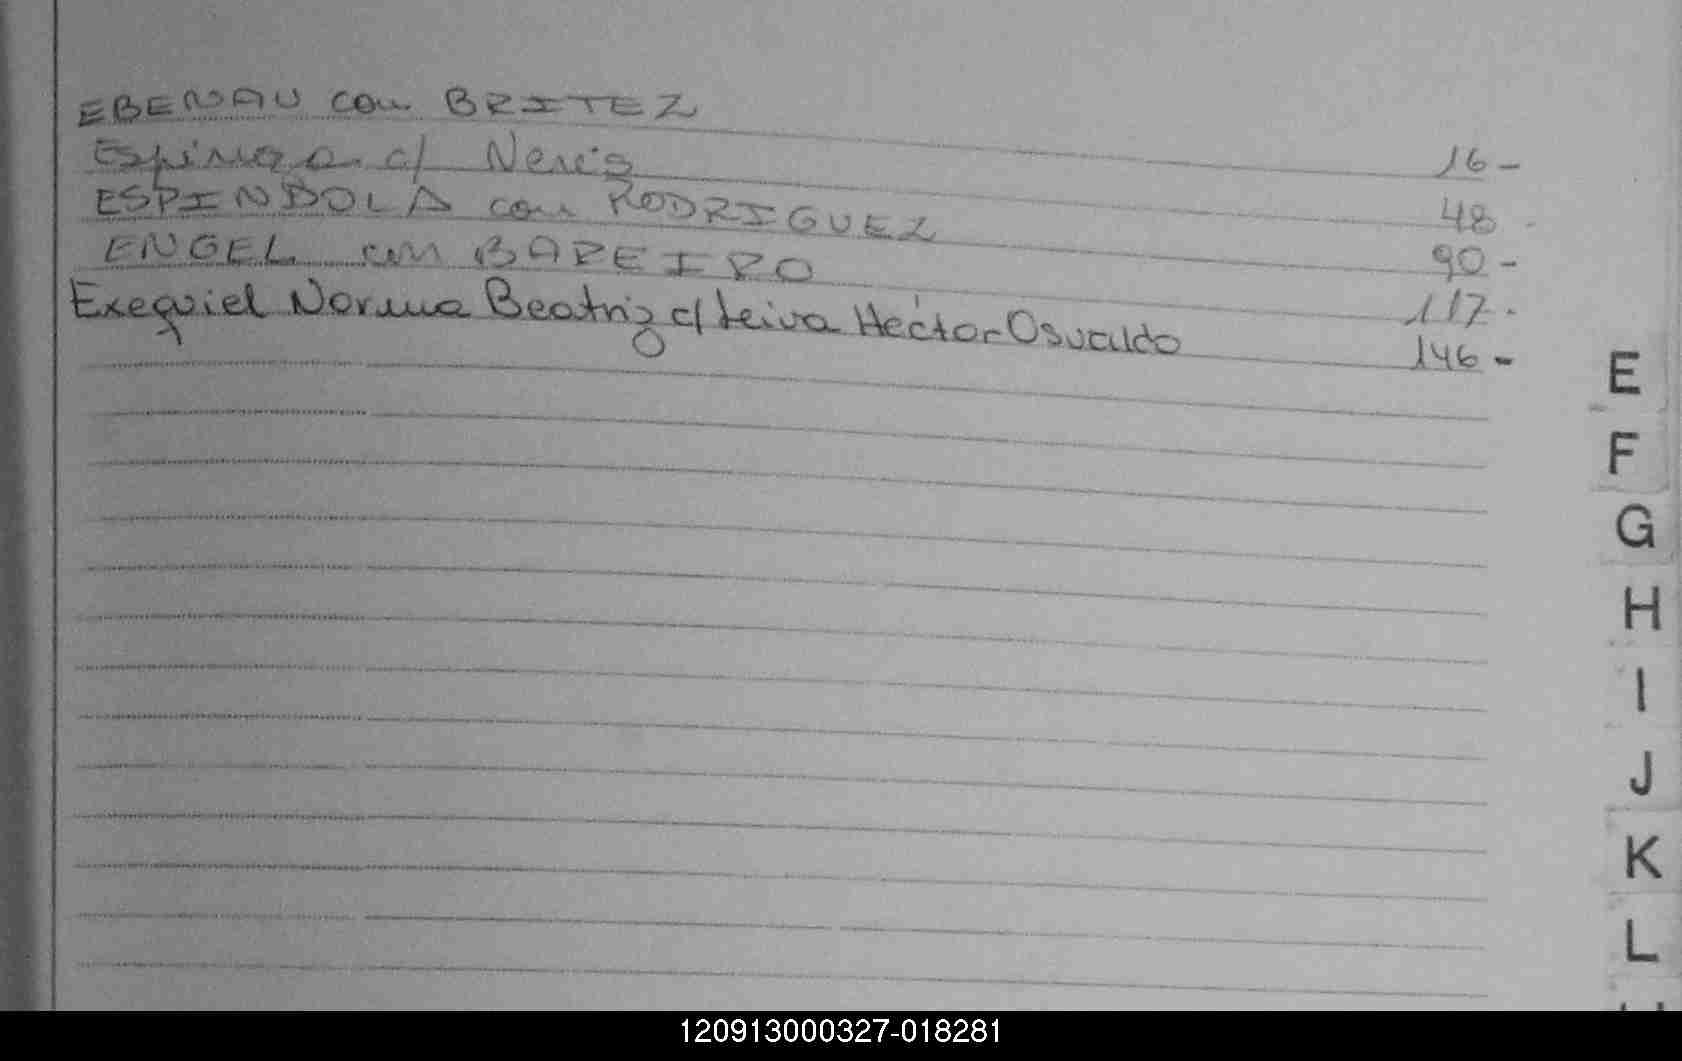 EBENAU con BRITEZ 16-
Espinoza c/ Neris 48
ESPINDOLA con RODRIGUEZ 90-
ENGEL con BAREIRO 117-
Exequiel Norma Beatriz c/ Leiva Héctor Osvaldo 146-
E
F
G
H
I
J
K
L
120913000327-018281